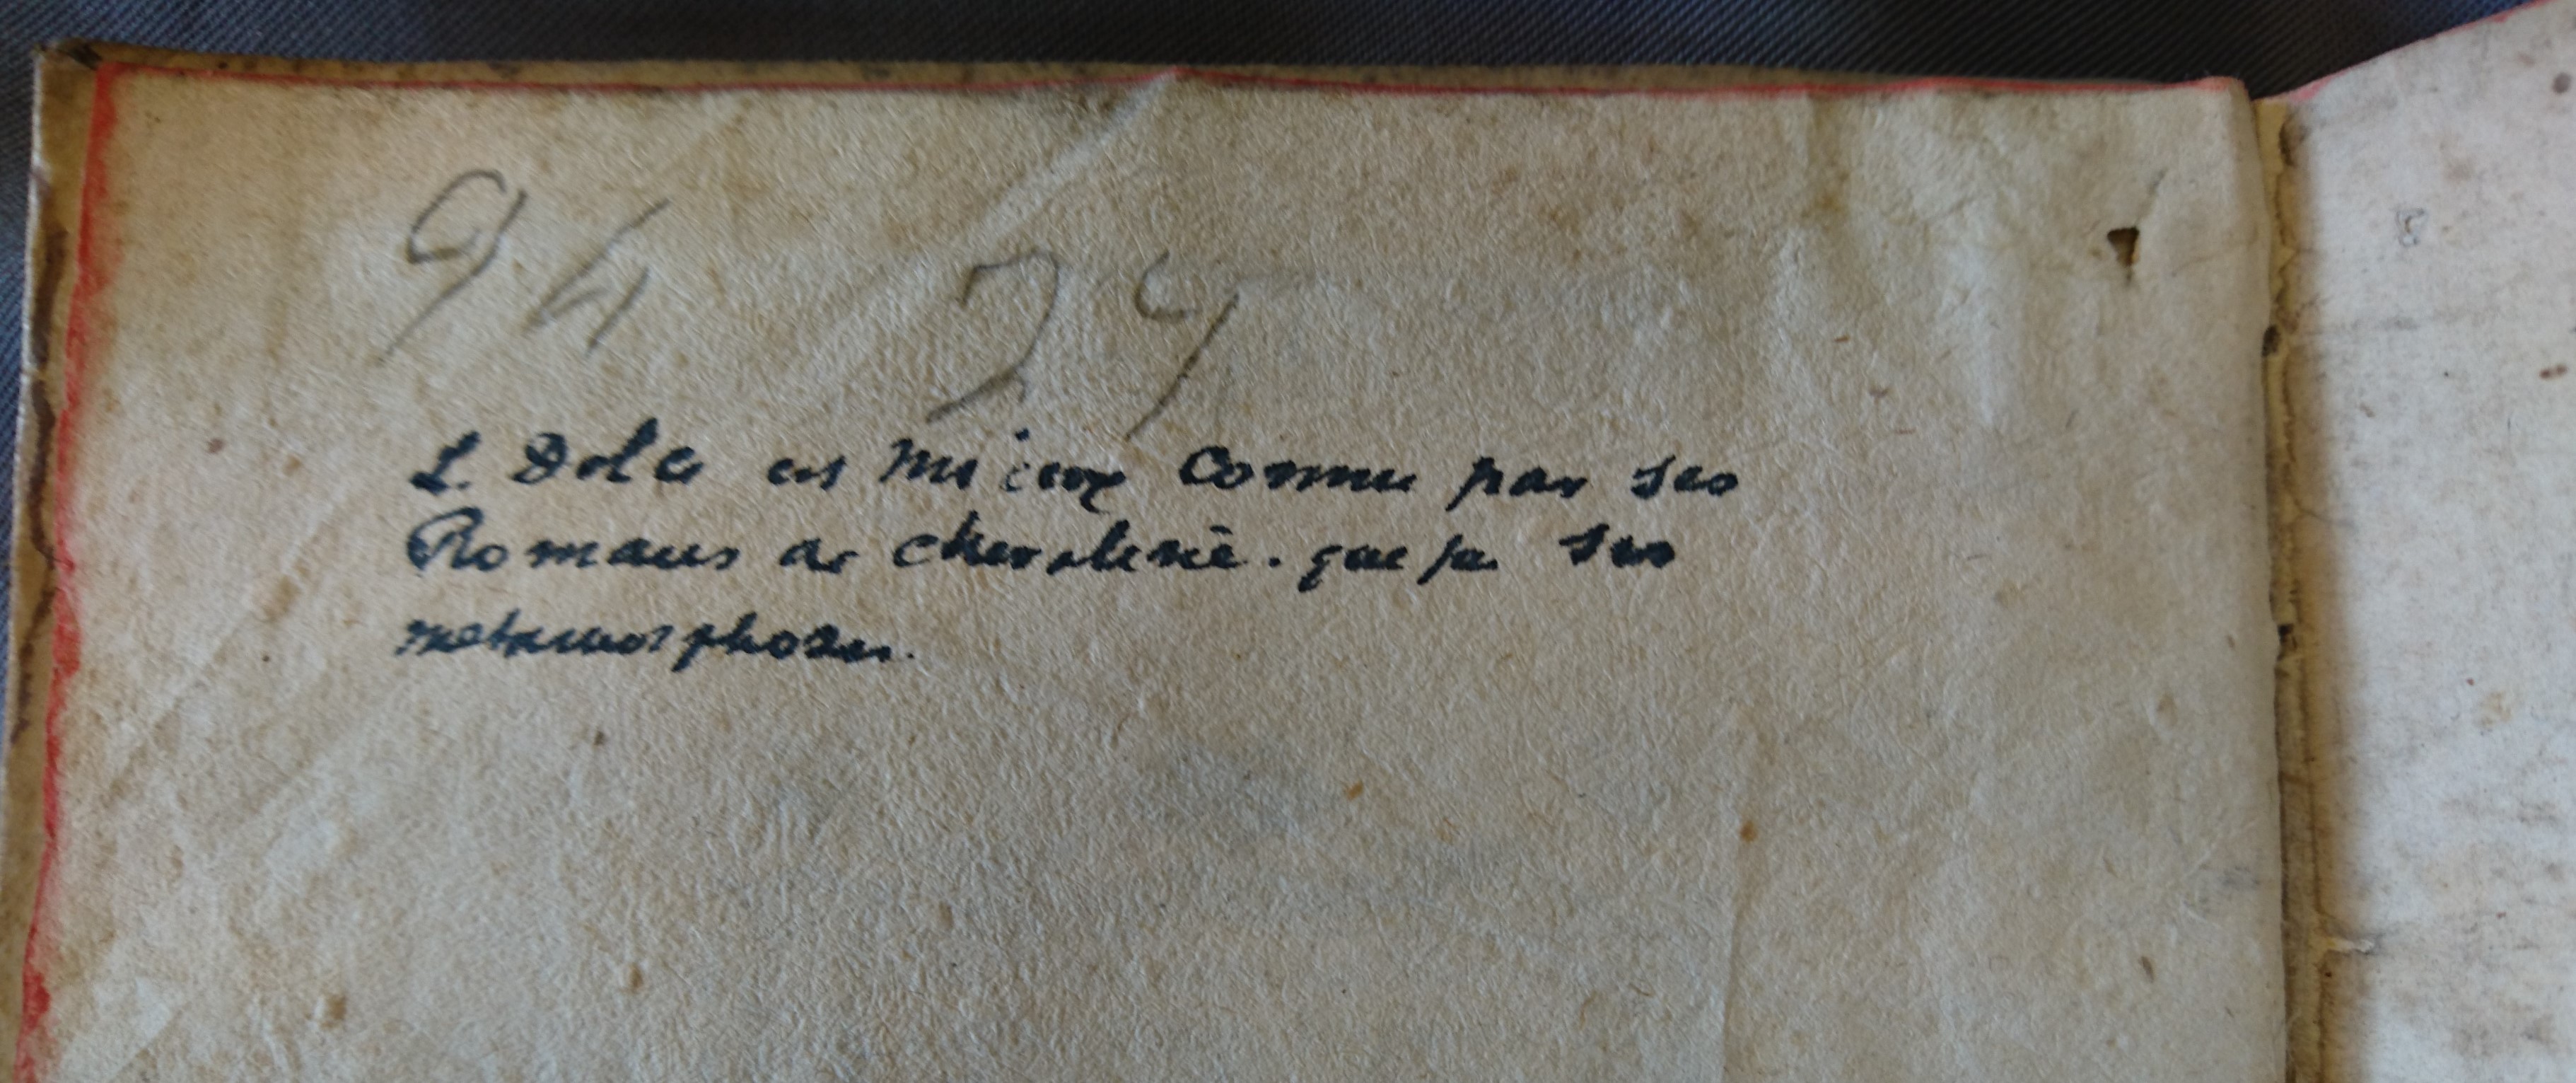 94 79
L. Dolce est mieux connu par ses
Romans de chevalerie. que par ses
metamorphoses.